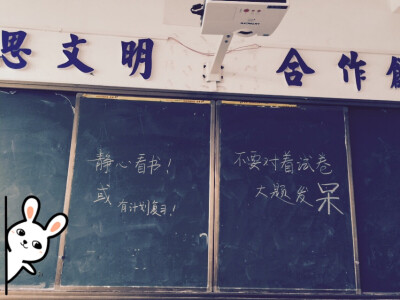 思文明 合作
静心看书！
或 有计划复习！
不要对着试卷
大题发呆